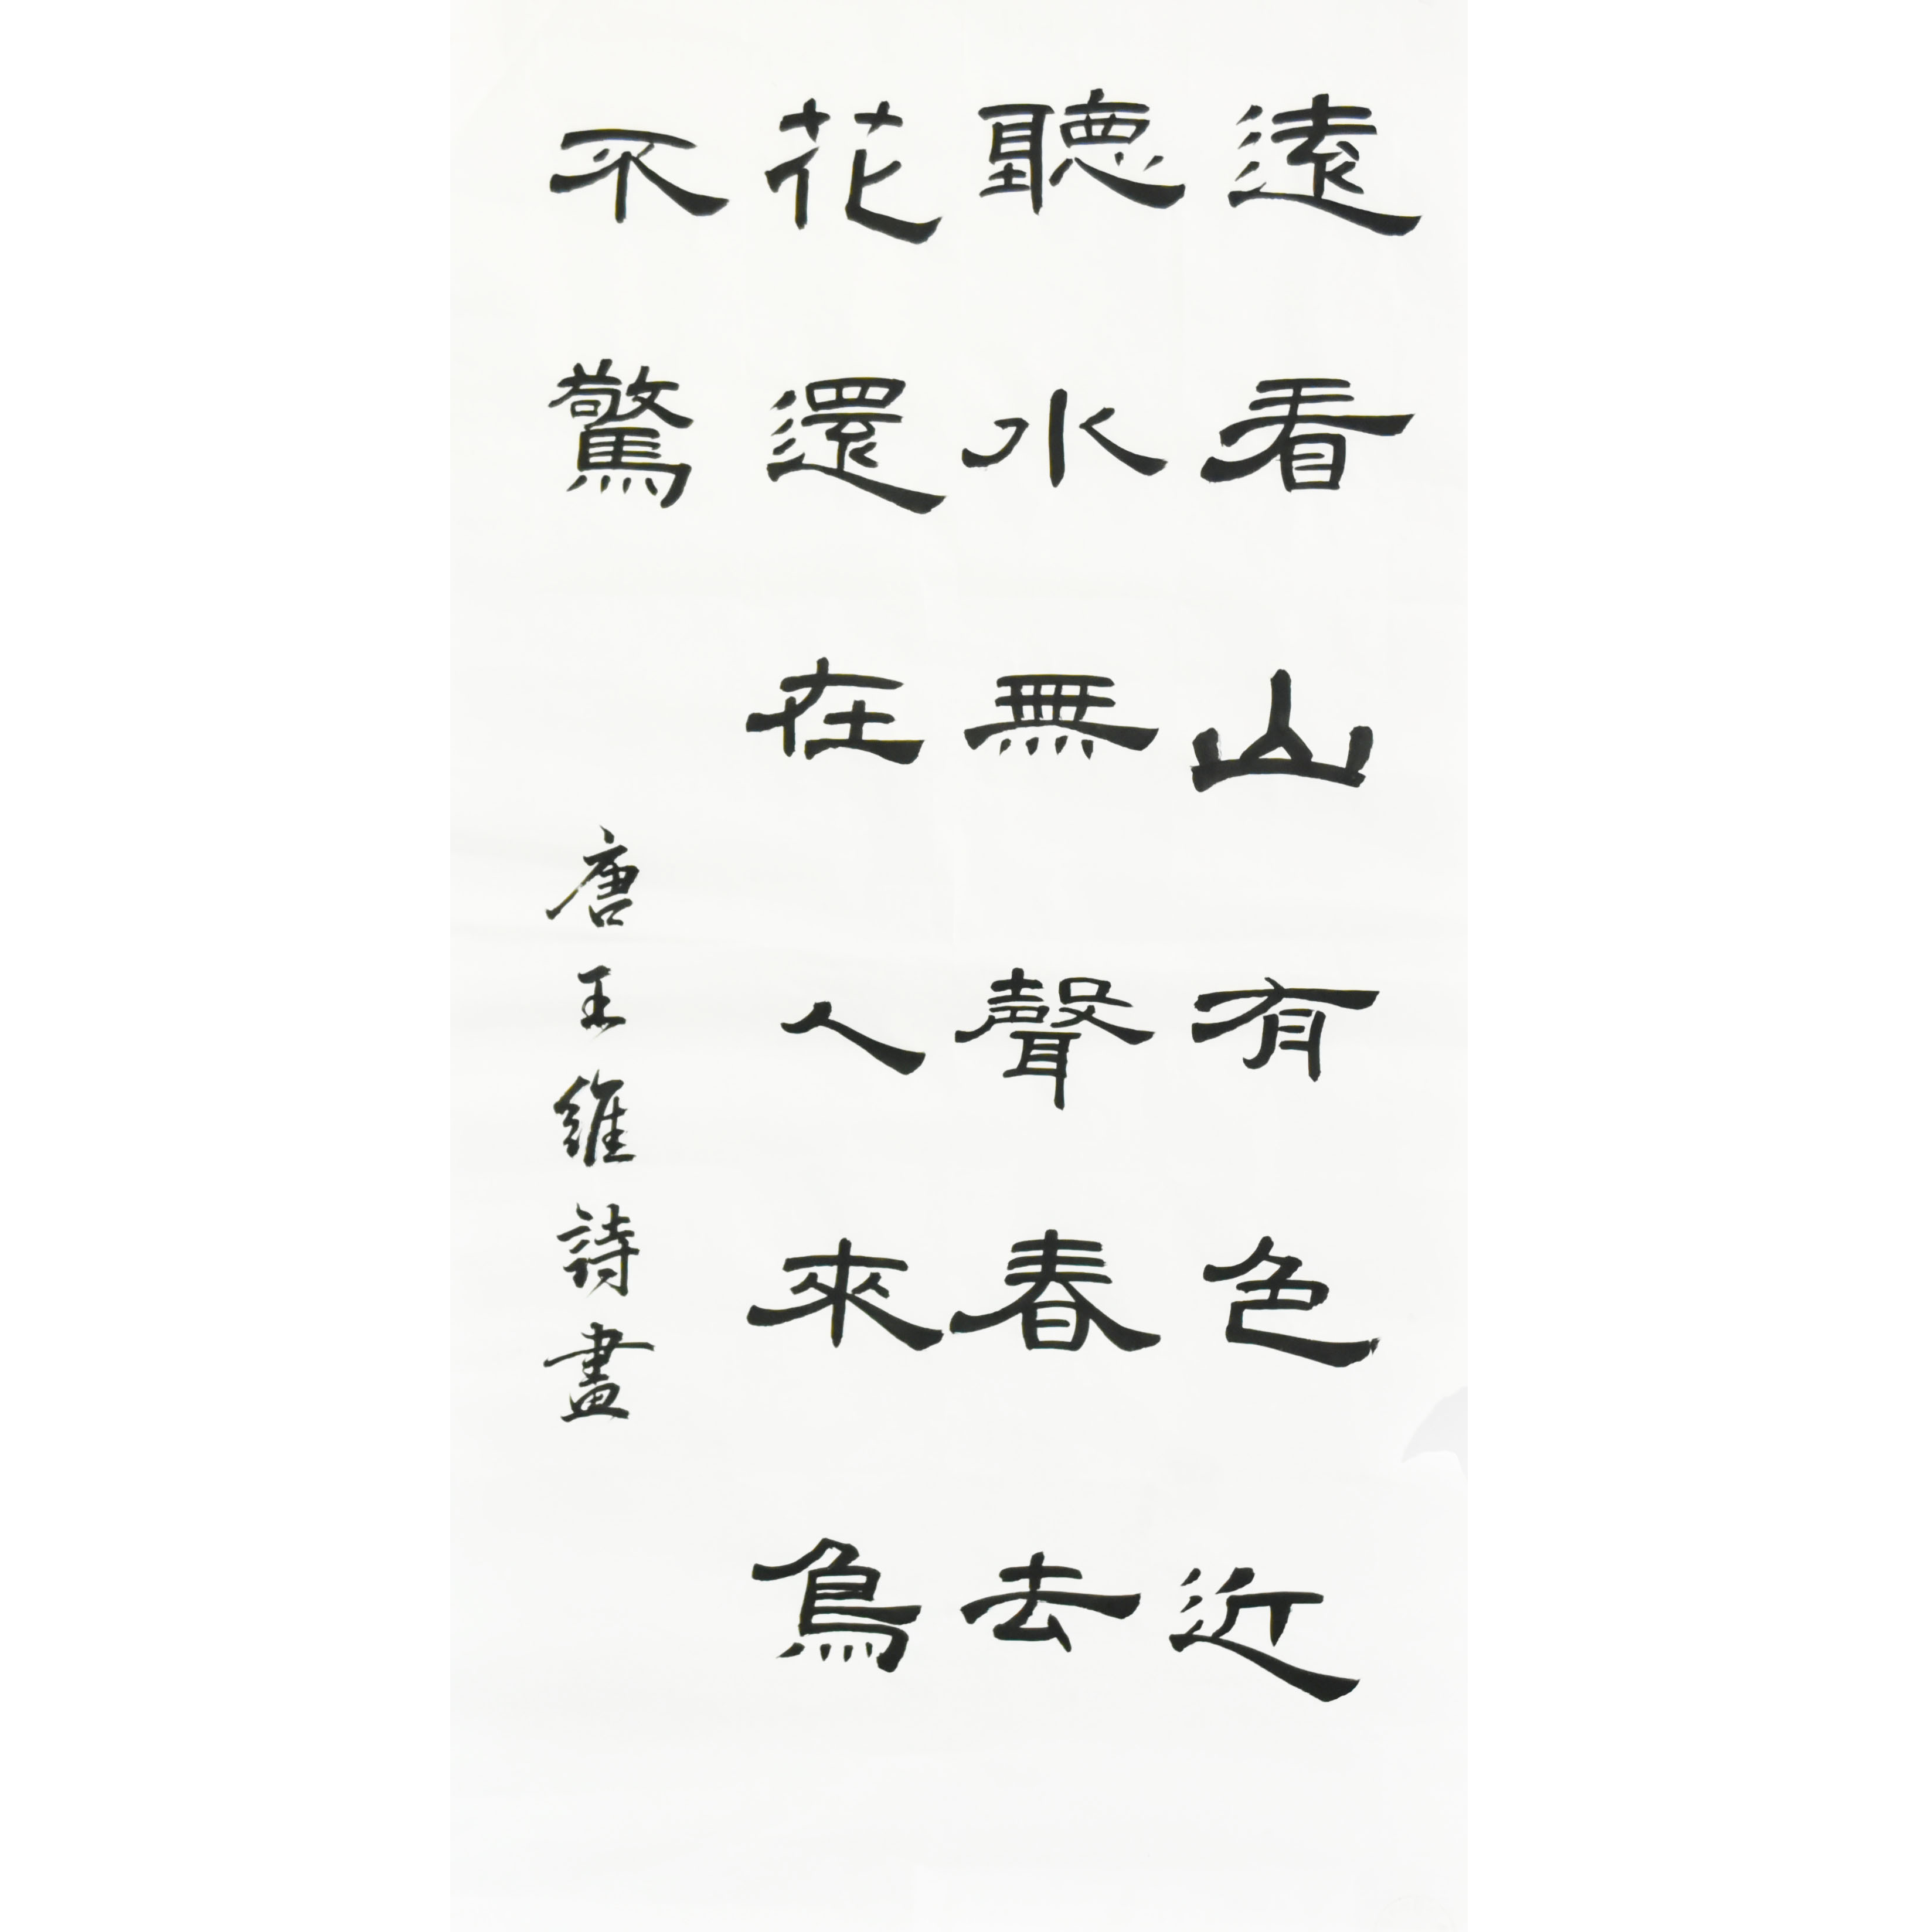 遠看山有色近
聽水無聲春去
花還在人來鳥
不驚
唐王維詩畫